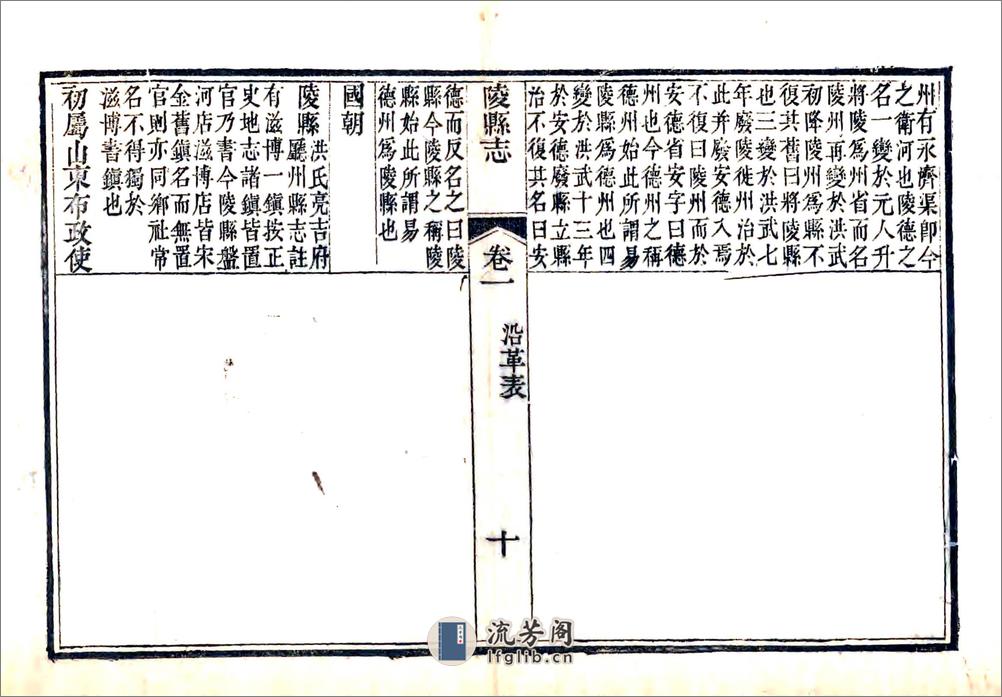 州有永濟渠即今
之衛河也陵德之
名一變於元人升
將陵爲州省而名
陵州再變於洪武
初降陵州爲縣不
復其舊曰將陵縣
也三變於洪武七
年廢陵徙州治於
此并廢安德入焉
不復曰陵州而於
安德省安字曰德
州也今德州之稱
德州始此所謂易
陵縣爲德州也四
變於洪武十三年
於安德廢縣立縣
治不復其名曰安
陵縣志
卷一
沿革表
十
德而反名之曰陵
縣今陵縣之稱陵
縣始此所謂易
德州爲陵縣也
國朝
陵縣 洪氏亮吉府
廳州縣志註
有滋博一鎭按正
史地志諸鎭皆置
官乃書今陵縣盤
河店滋博店皆宋
金舊鎭名而無置
官則亦同鄉社常
名不得獨於
滋博書鎭也
初屬山東布政使
流芳阁
lfglib.cn